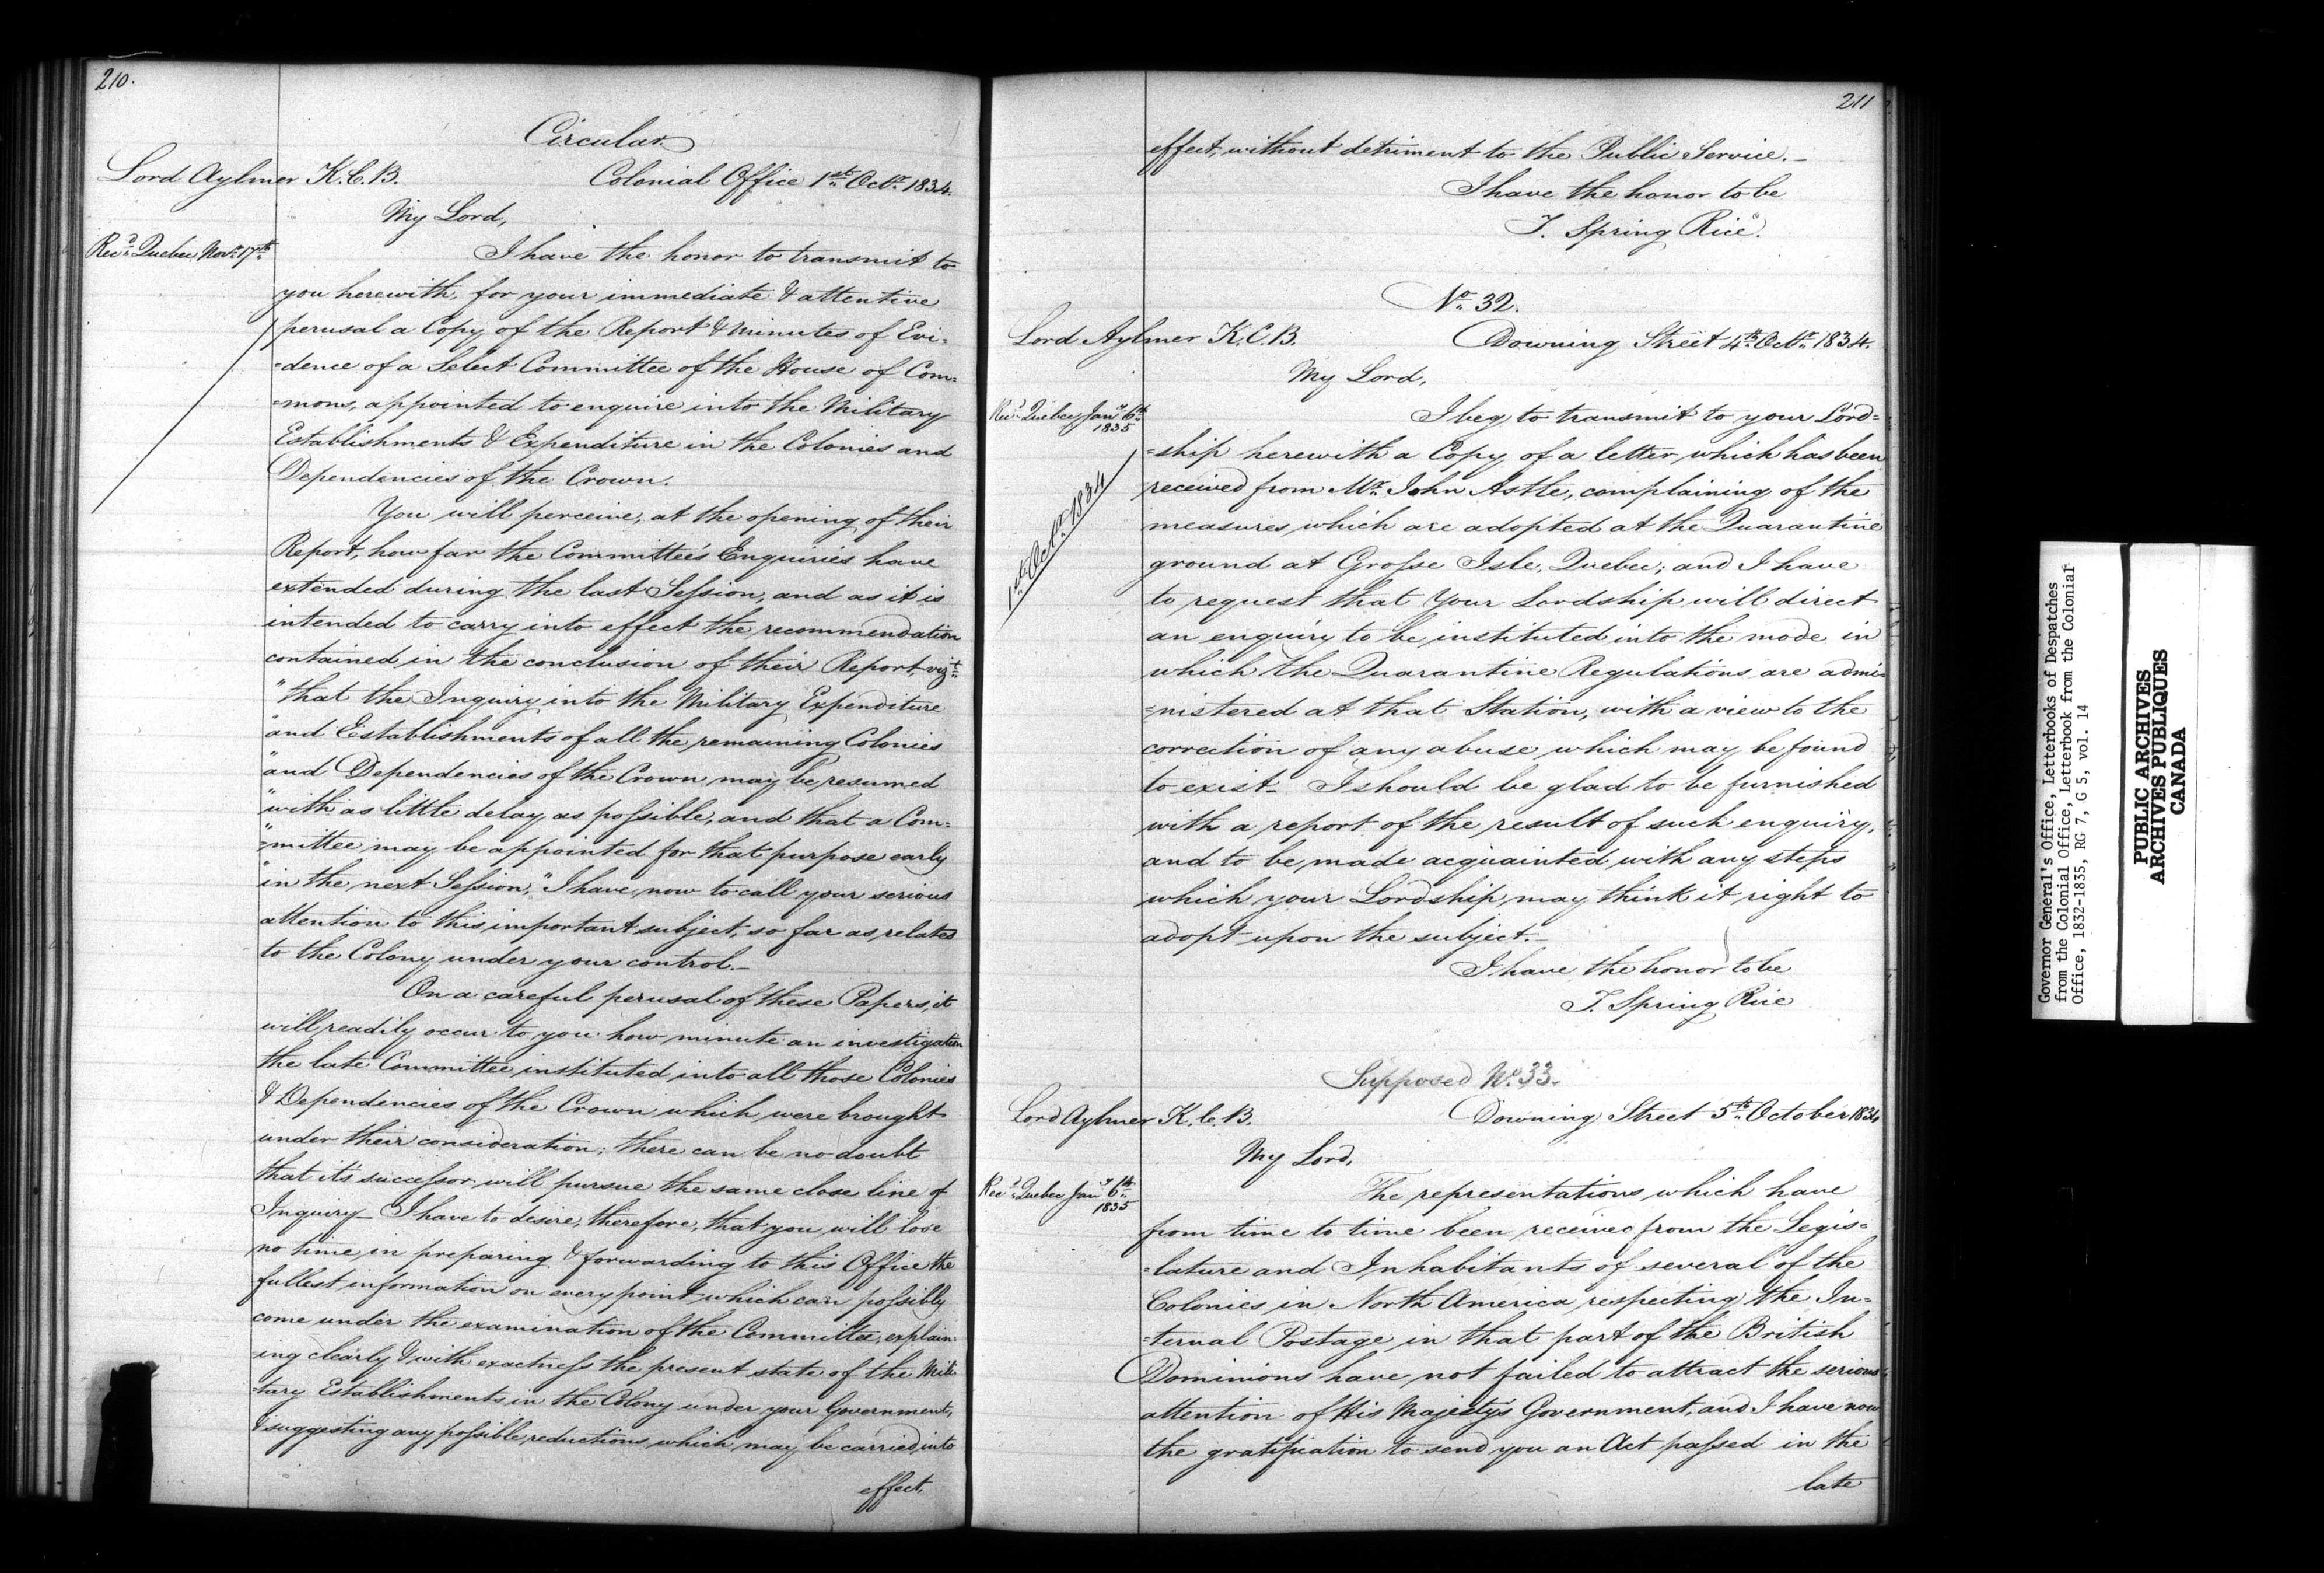 210.
Circular
Lord Aylmer K.C.B. Colonial Office 1st Octr 1834.
My Lord,
Recd Quebec Novr 17th
I have the honor to transmit to
you herewith, for your immediate & attentive
perusal a Copy of the Report & Minutes of Evi-
=dence of a Select Committee of the House of Com=
=mons, appointed to enquire into the Military
Establishments & Expenditure in the Colonies and
Dependencies of the Crown.
You will perceive, at the opening of their
Report, how far the Committee's Enquiries have
extended during the last Session, and as it is
intended to carry into effect the recommendation
contained in the conclusion of their Report, vizt
"that the Inquiry into the Military Expenditure
"and Establishments of all the remaining Colonies
"and Dependencies of the Crown may be resumed
"with as little delay as possible, and that a Com=
"=mittee may be appointed for that purpose early
"in the next Session," I have now to call your serious
attention to this important subject, so far as relates
to the Colony under your control.—
On a careful perusal of these Papers, it
will readily occur to you how minute an investigation
the late Committee instituted into all those Colonies
& Dependencies of the Crown which were brought
under their consideration; there can be no doubt
that it's successor will pursue the same close line of
Inquiry— I have to desire, therefore, that you will lose
no time in preparing & forwarding to this Office the
fullest information on every point which can possibly
come under the examination of the Committee, explain-
=ing clearly & with exactness the present state of the Mili-
=tary Establishments in the Colony under your Government,
& suggesting any possible reductions which may be carried into
effect,
211
effect, without detriment to the Public Service.—
I have the honor to be
T. Spring Rice.
No 32.
Lord Aylmer K.C.B. Downing Street 4th Octr 1834.
My Lord,
Recd Quebec Jany 6th
1835
I beg to transmit to your Lord=
=ship herewith a Copy of a letter which has been
1st Octr 1834
received from Mr John Astle, complaining of the
measures which are adopted at the Quarantine
ground at Grosse Isle, Quebec; and I have
to request that Your Lordship will direct
an enquiry to be instituted into the mode in
which the Quarantine Regulations are admi=
=nistered at that Station, with a view to the
correction of any abuse which may be found
to exist— I should be glad to be furnished
with a report of the result of such enquiry,
and to be made acquainted with any steps
which your Lordship may think it right to
adopt upon the subject.—
I have the honor to be
T. Spring Rice
Supposed No 33.
Lord Aylmer K.C.B. Downing Street 5th October 1834
My Lord,
Recd Quebec Jany 6th
1835
The representations which have
from time to time been received from the Legis=
=lature and Inhabitants of several of the
Colonies in North America respecting the In=
=ternal Postage in that part of the British
Dominions have not failed to attract the serious
attention of His Majesty's Government, and I have now
the gratification to send you an Act passed in the
late
Governor General's Office, Letterbooks of Despatches
from the Colonial Office, Letterbook from the Colonial
Office, 1832-1835, RG 7, G 5, vol. 14
PUBLIC ARCHIVES
ARCHIVES PUBLIQUES
CANADA